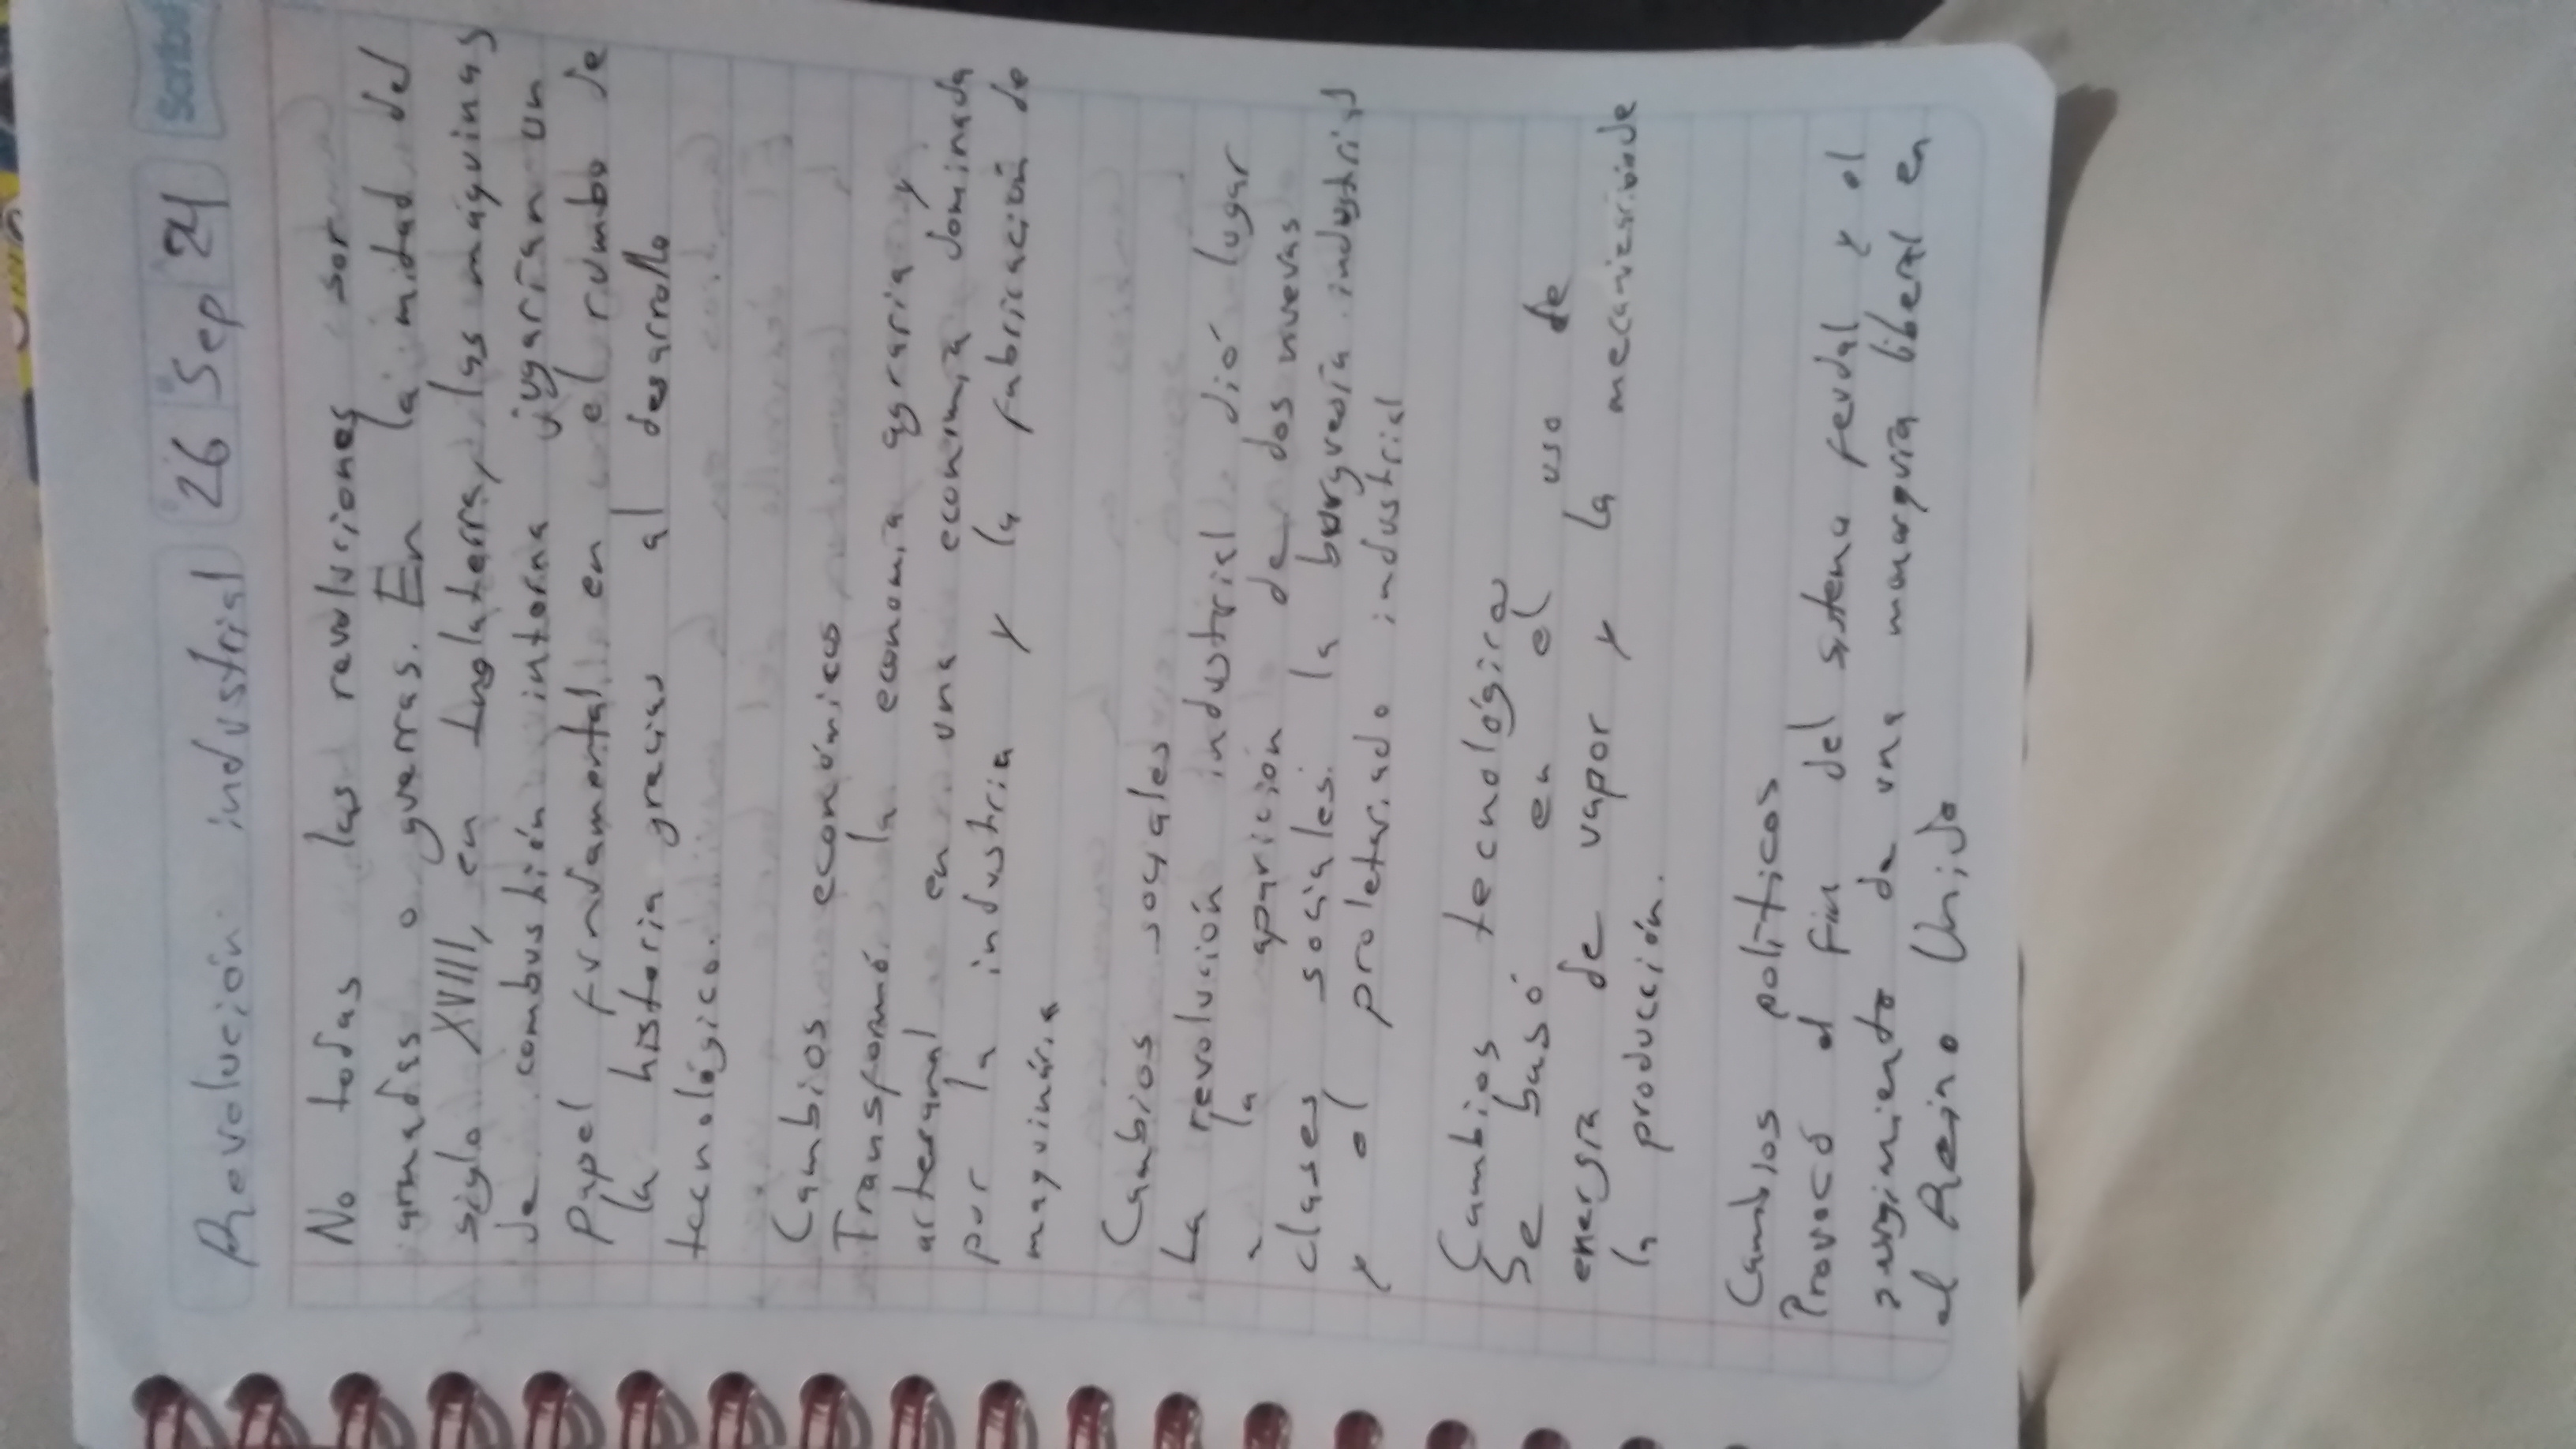 Revolución industrial 26 Sep 24 Scribe
No todas las revoluciones son
armadas o guerras. En la mitad del
siglo XVIII, en Inglaterra, las máquinas
de combustión interna jugarían un
Papel fundamental en el rumbo de
la historia gracias al desarrollo
tecnológico.
Cambios económicos
Transformó la economia agraria y
artersanal en una economía dominada
por la industria y la fabricación de
maquinária
Cambios sociales
La revolución industrial dió lugar
a la aparición de dos nuevas
clases sociales: la burguesía industrial
y el proletariado industrial
Cambios tecnológico
Se basó en el uso de
energía de vapor y la mecanización de
la producción.
Cambios políticos
Provocó el fin del sistema feudal y el
surgimiento de una monarquía liberal en
el Reino Unido